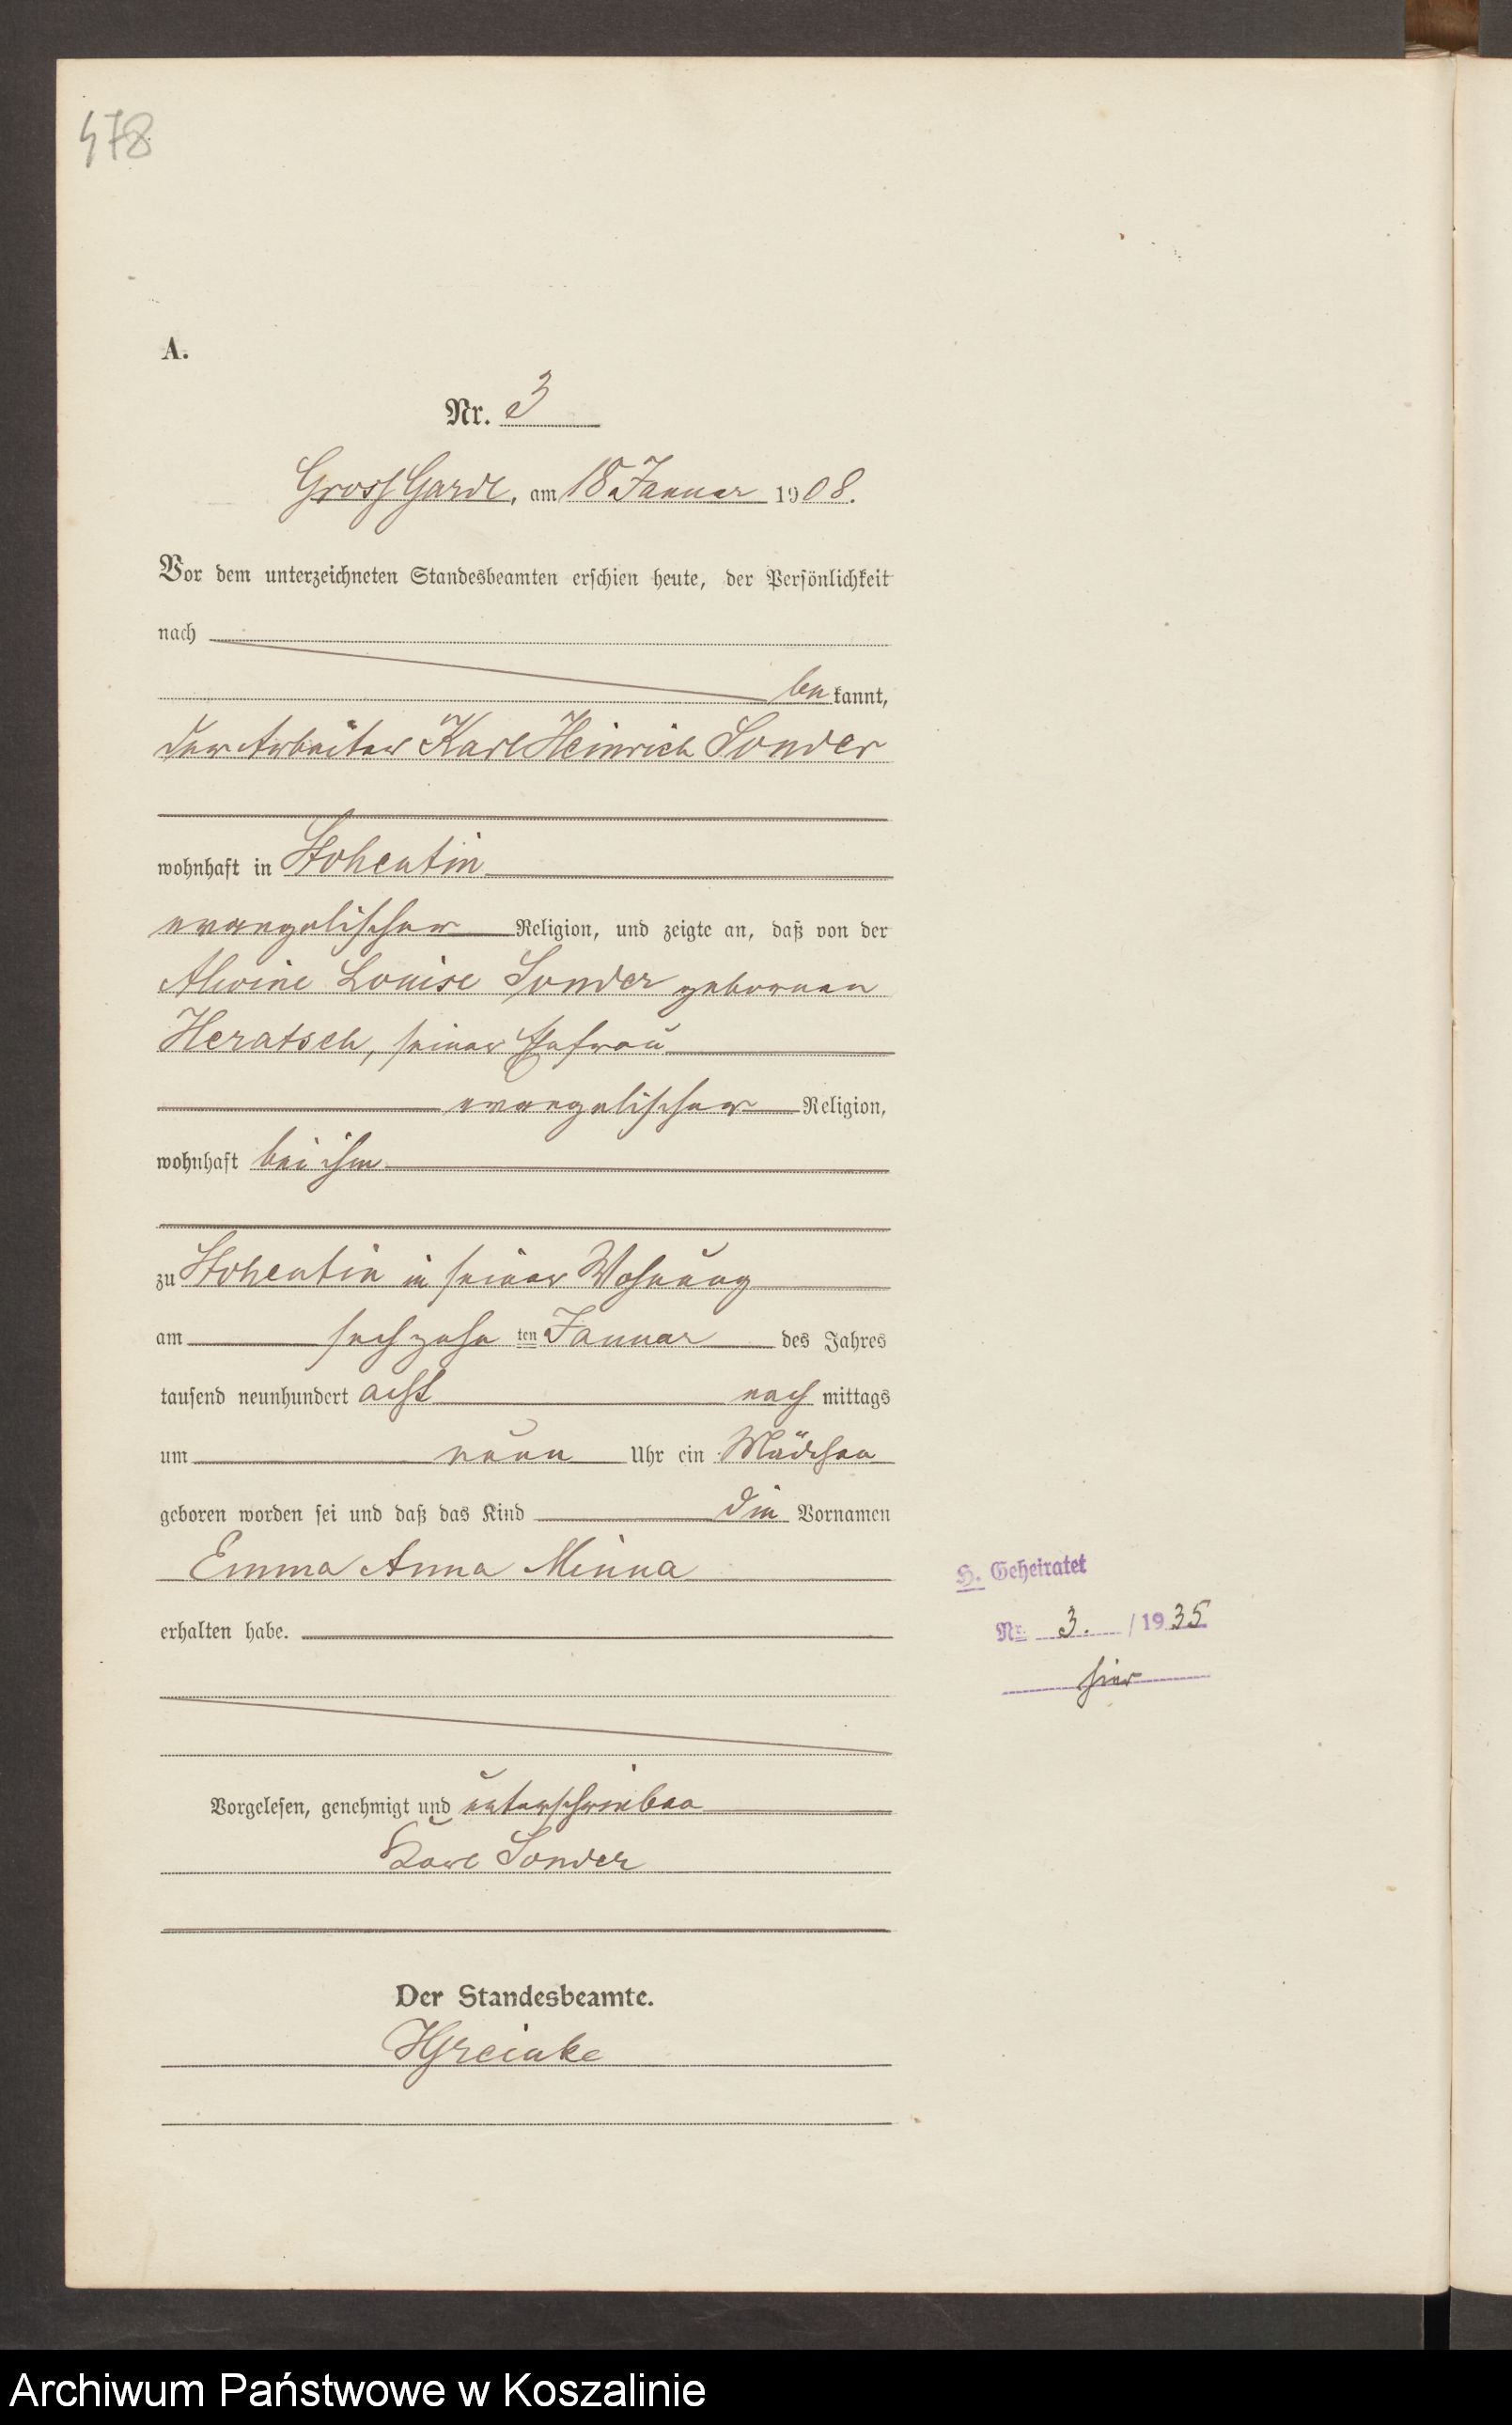 478
A.
Nr. 3
Gross Garde, am 18 Januar 1908.
Vor dem unterzeichneten Standesbeamten erschien heute, der Persönlichkeit
nach
bekannt,
der Arbeiter Karl Heinrich Sonder
wohnhaft in Stohentin
evangelischer Religion, und zeigte an, daß von der
Alwine Louise Sonder geborenen
Heratsch, seiner Ehefrau
evangelischer Religion,
wohnhaft bei ihm
zu Stohentin in seiner Wohnung
am sechzehnten Januar des Jahres
tausend neunhundert acht nachmittags
um neun Uhr ein Mädchen
geboren worden sei und daß das Kind die Vornamen
Emma Anna Minna
erhalten habe.
H. Geheiratet
Nr. 3. / 1935
hier
Vorgelesen, genehmigt und unterschrieben
Karl Sonder
Der Standesbeamte.
Archiwum Państwowe w Koszalinie